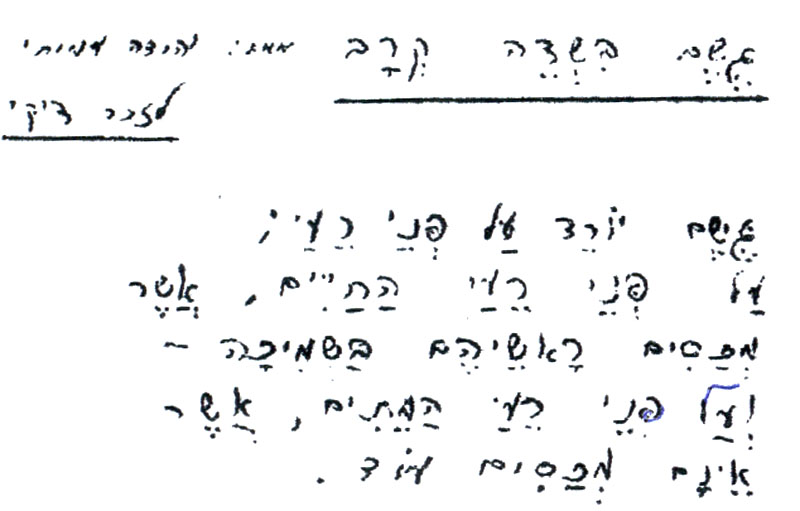 גֶּשֶׁם בִּשְׂדֵה קְרָב מאת: יהודה עמיחי
לזכר דיקי
גֶּשֶׁם יוֹרֵד עַל פְּנֵי רֵעַי;
עַל פְּנֵי רֵעַי הַחַיִּים, אֲשֶׁר
מְכַסִּים רָאשֵׁיהֶם בַּשְּׂמִיכָה –
וְעַל פְּנֵי רֵעַי הַמֵּתִים, אֲשֶׁר
אֵינָם מְכַסִּים עוֹד.